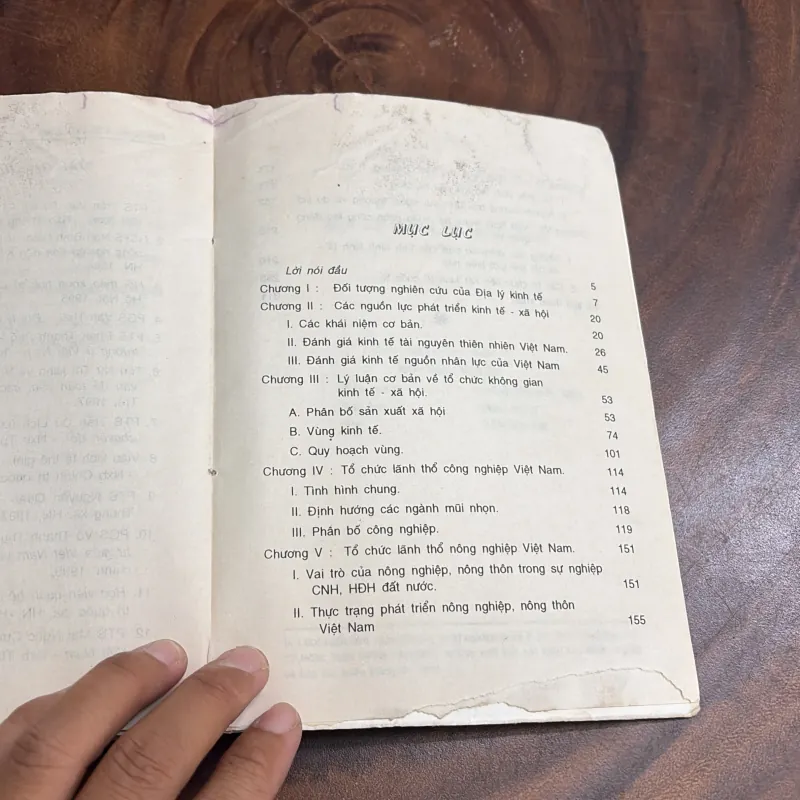 MỤC LỤC
Lời nói đầu 5
Chương I : Đối tượng nghiên cứu của Địa lý kinh tế 7
Chương II : Các nguồn lực phát triển kinh tế - xã hội 20
I. Các khái niệm cơ bản. 20
II. Đánh giá kinh tế tài nguyên thiên nhiên Việt Nam. 26
III. Đánh giá kinh tế nguồn nhân lực của Việt Nam 45
Chương III : Lý luận cơ bản về tổ chức không gian
kinh tế - xã hội. 53
A. Phân bố sản xuất xã hội 53
B. Vùng kinh tế. 74
C. Quy hoạch vùng. 101
Chương IV : Tổ chức lãnh thổ công nghiệp Việt Nam. 114
I. Tình hình chung. 114
II. Định hướng các ngành mũi nhọn. 118
III. Phân bố công nghiệp. 119
Chương V : Tổ chức lãnh thổ nông nghiệp Việt Nam. 151
I. Vai trò của nông nghiệp, nông thôn trong sự nghiệp
CNH, HĐH đất nước. 151
II. Thực trạng phát triển nông nghiệp, nông thôn
Việt Nam 155